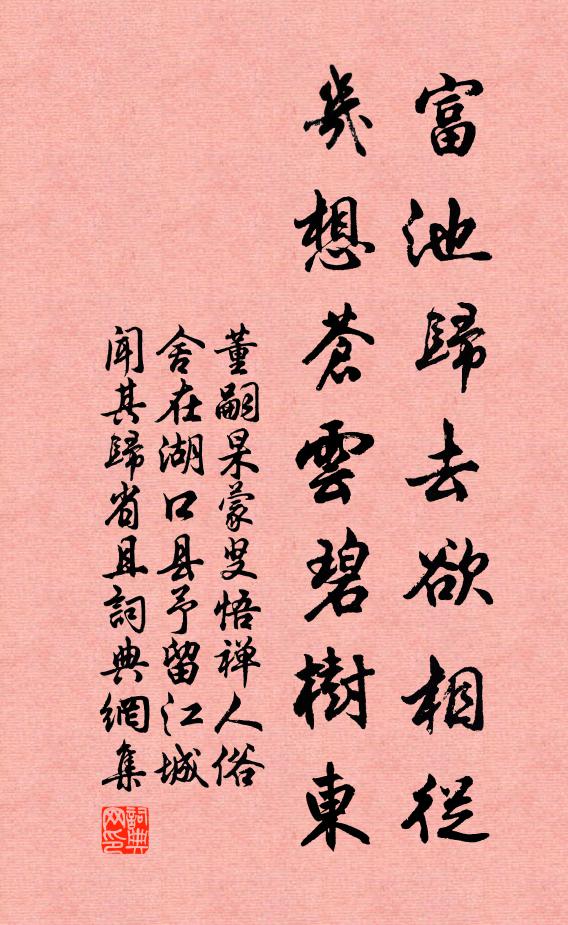 富池歸去欲相從
幾想蒼雲碧樹東
董嗣杲蒙叟悟禅人俗
舍在湖口县予留江城
闻其歸省且詞典網集
詞典网印